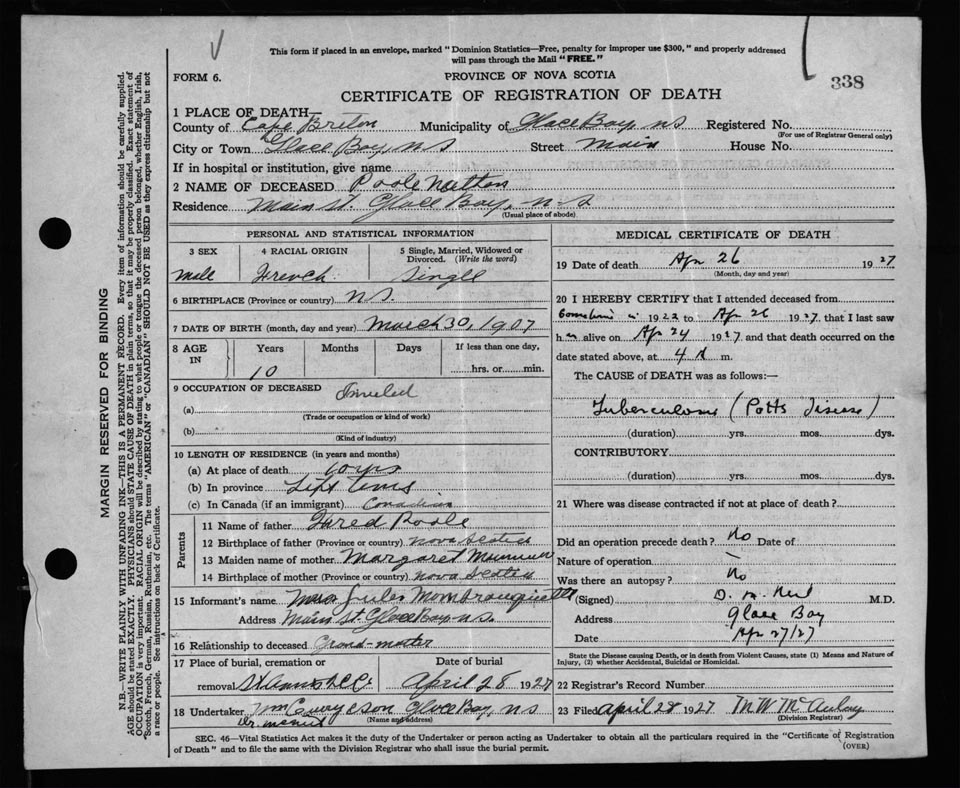 This form if placed in an envelope, marked "Dominion Statistics—Free, penalty for improper use $300," and properly addressed
will pass through the Mail "FREE."
FORM 6.
PROVINCE OF NOVA SCOTIA
338
CERTIFICATE OF REGISTRATION OF DEATH
1 PLACE OF DEATH—
County of Cape Breton Municipality of Glace Bay, NS Registered No.
(For use of Registrar General only)
City or Town Glace Bay, NS Street Main House No.
If in hospital or institution, give name
2 NAME OF DECEASED Poole
Residence Main St. Glace Bay, N.S
(Usual place of abode)
PERSONAL AND STATISTICAL INFORMATION
3 SEX 4 RACIAL ORIGIN 5 Single, Married, Widowed or
Divorced. (Write the word)
Male French Single
6 BIRTHPLACE (Province or country) N.S.
7 DATE OF BIRTH (month, day and year) March 30, 1907
8 AGE IN Years Months Days If less than one day,
10 hrs. or min.
9 OCCUPATION OF DECEASED
(a)
(Trade or occupation or kind of work)
(b)
(Kind of industry)
10 LENGTH OF RESIDENCE (in years and months)
(a) At place of death 10 yrs
(b) In province
(c) In Canada (if an immigrant) Canadian
Parents
11 Name of father Fred Poole
12 Birthplace of father (Province or country) Nova Scotia
13 Maiden name of mother Margaret
14 Birthplace of mother (Province or country) Nova Scotia
15 Informant's name Jules
Address Main St. Glace Bay N.S.
16 Relationship to deceased Grand-mother
17 Place of burial, cremation or Date of burial
removal April 28 1927
18 Undertaker Glace Bay, NS
(Name and address)
MEDICAL CERTIFICATE OF DEATH
19 Date of death Apr 26 1927
(Month, day and year)
20 I HEREBY CERTIFY that I attended deceased from
Sometime in 1922 to Apr 26 1927, that I last saw
h alive on Apr 24 1927 and that death occurred on the
date stated above, at 4 m.
The CAUSE of DEATH was as follows:—
Tuberculosis (Potts Disease)
(duration) yrs. mos. dys.
CONTRIBUTORY
(duration) yrs. mos. dys.
21 Where was disease contracted if not at place of death?
Did an operation precede death? No Date of
Nature of operation –
Was there an autopsy? No
(Signed) D. M. M.D.
Address Glace Bay
Date Apr 27/27
State the Disease causing Death, or in death from Violent Causes, state (1) Means and Nature of
Injury, (2) whether Accidental, Suicidal or Homicidal.
22 Registrar's Record Number
23 Filed April 28 1927 M W McAulay
(Division Registrar)
SEC. 46—Vital Statistics Act makes it the duty of the Undertaker or person acting as Undertaker to obtain all the particulars required in the "Certificate of Registration
of Death" and to file the same with the Division Registrar who shall issue the burial permit.
(OVER)
MARGIN RESERVED FOR BINDING
N.B.—WRITE PLAINLY WITH UNFADING INK—THIS IS A PERMANENT RECORD. Every item of information should be carefully supplied.
AGE should be stated EXACTLY. PHYSICIANS should STATE CAUSE OF DEATH in plain terms, so that it may be properly classified. Exact statement of
OCCUPATION is very important. RACIAL ORIGIN will be described by stating to what people or tongue the deceased person belonged, whether English, Irish,
Scotch, French, German, Russian, Ruthenian, etc. The terms "AMERICAN" or "CANADIAN" SHOULD NOT BE USED as they express citizenship but not
a race or people. See instructions on back of Certificate.